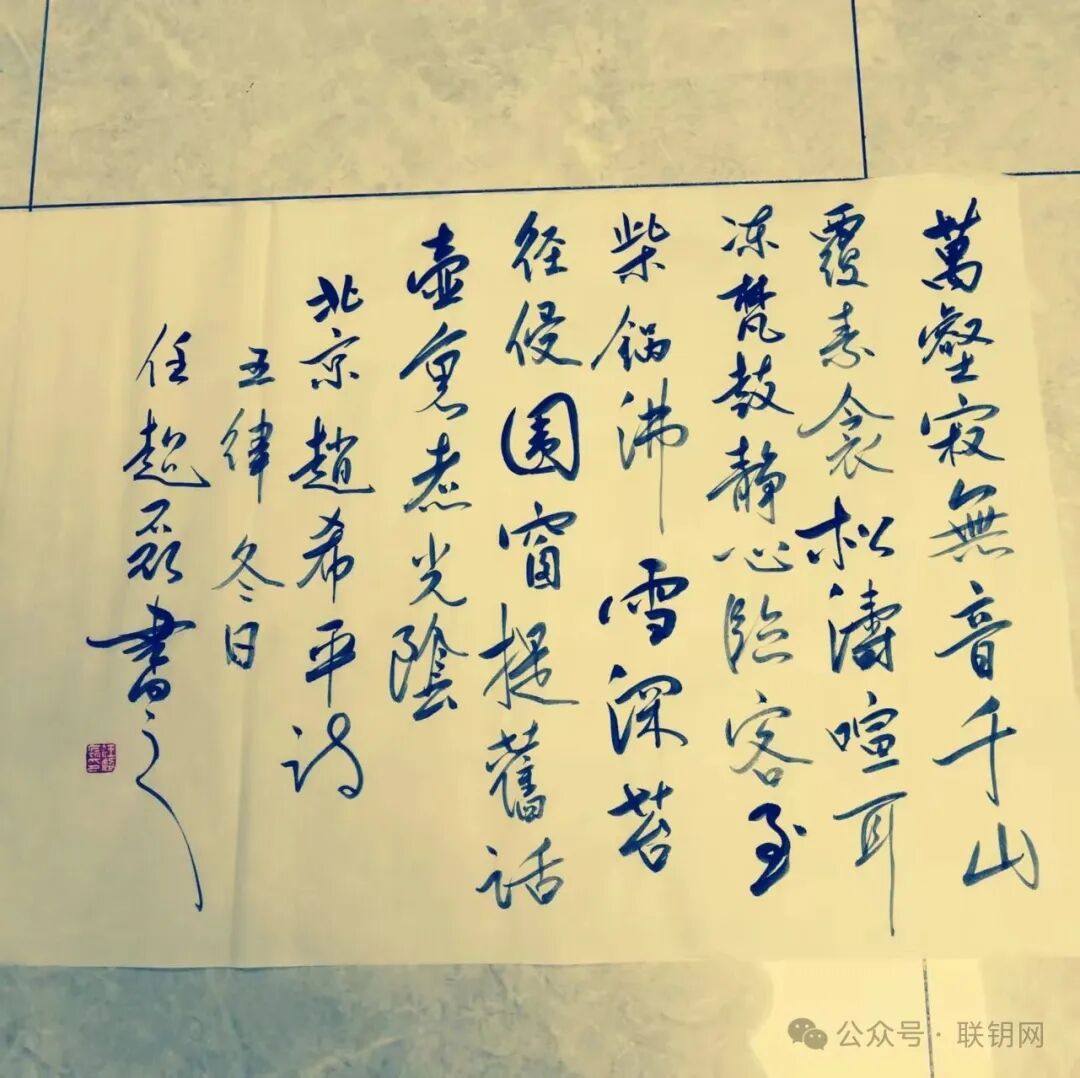 萬壑寂無音千山
覆素衾松濤喧耳
凍梵鼓靜心臨客至
柴锅沸雪深苔
径侵围窗提舊话
壶里煮光陰
北京趙希平诗
五律冬日
任超磊書之
公众号·联钥网